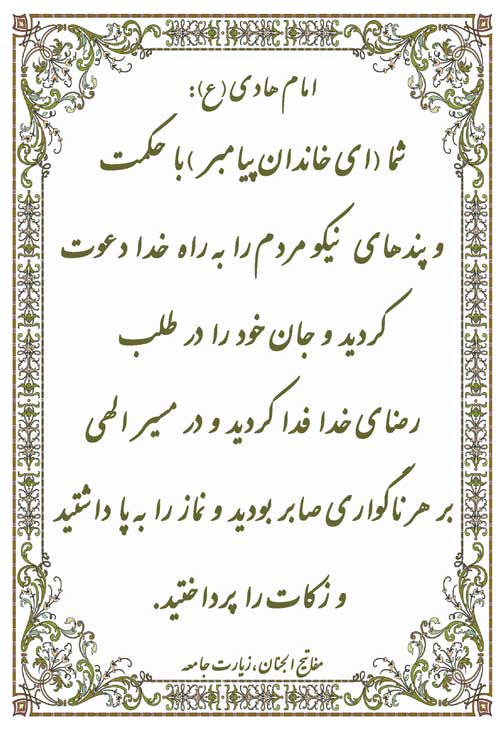 امام هادی (ع):
شما (ای خاندان پیامبر) با حکمت
و پندهای نیکو مردم را به راه خدا دعوت
کردید و جان خود را در طلب
رضای خدا فدا کردید و در مسیر الهی
بر هر ناگواری صابر بودید و نماز را به پا داشتید
و زکات را پرداختید.
مفاتیح الجنان، زیارت جامعه